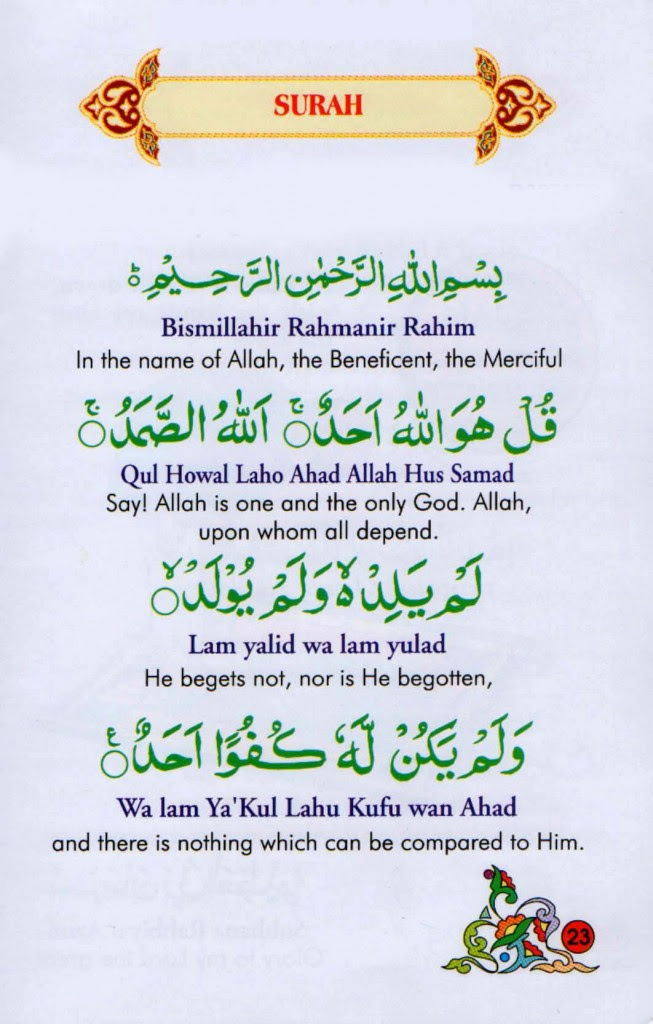 SURAH
بِسْمِ اللهِ الرَّحْمٰنِ الرَّحِيْمِ ؕ
Bismillahir Rahmanir Rahim
In the name of Allah, the Beneficent, the Merciful
قُلْ هُوَ اللهُ اَحَدٌ ۚ○ اَللهُ الصَّمَدُ ۚ○
Qul Howal Laho Ahad Allah Hus Samad
Say! Allah is one and the only God. Allah,
upon whom all depend.
لَمْ يَلِدْ ۙ۵ وَلَمْ يُوْلَدْ ۙ○
Lam yalid wa lam yulad
He begets not, nor is He begotten,
وَلَمْ يَكُنْ لَّهٗ كُفُوًا اَحَدٌ ○ع
Wa lam Ya'Kul Lahu Kufu wan Ahad
and there is nothing which can be compared to Him.
23